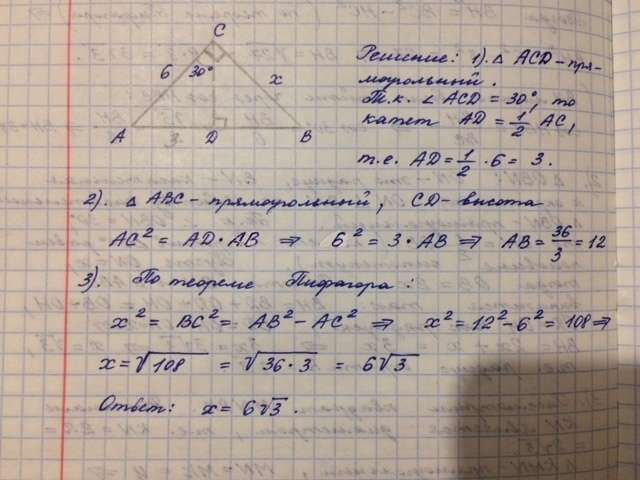 C
6
30°
x
A
3
D
B
Решение: 1) △ ACD - пря-
моугольный.
Т.к. ∠ ACD = 30°, то
катет AD = 1/2 AC,
т.е. AD = 1/2 · 6 = 3.
2). △ ABC - прямоугольный, CD - высота
AC² = AD · AB ⇒ 6² = 3 · AB ⇒ AB = 36/3 = 12
3). По теореме Пифагора:
x² = BC² = AB² - AC² ⇒ x² = 12² - 6² = 108 ⇒
x = √108 = √36·3 = 6√3
Ответ: x = 6√3.